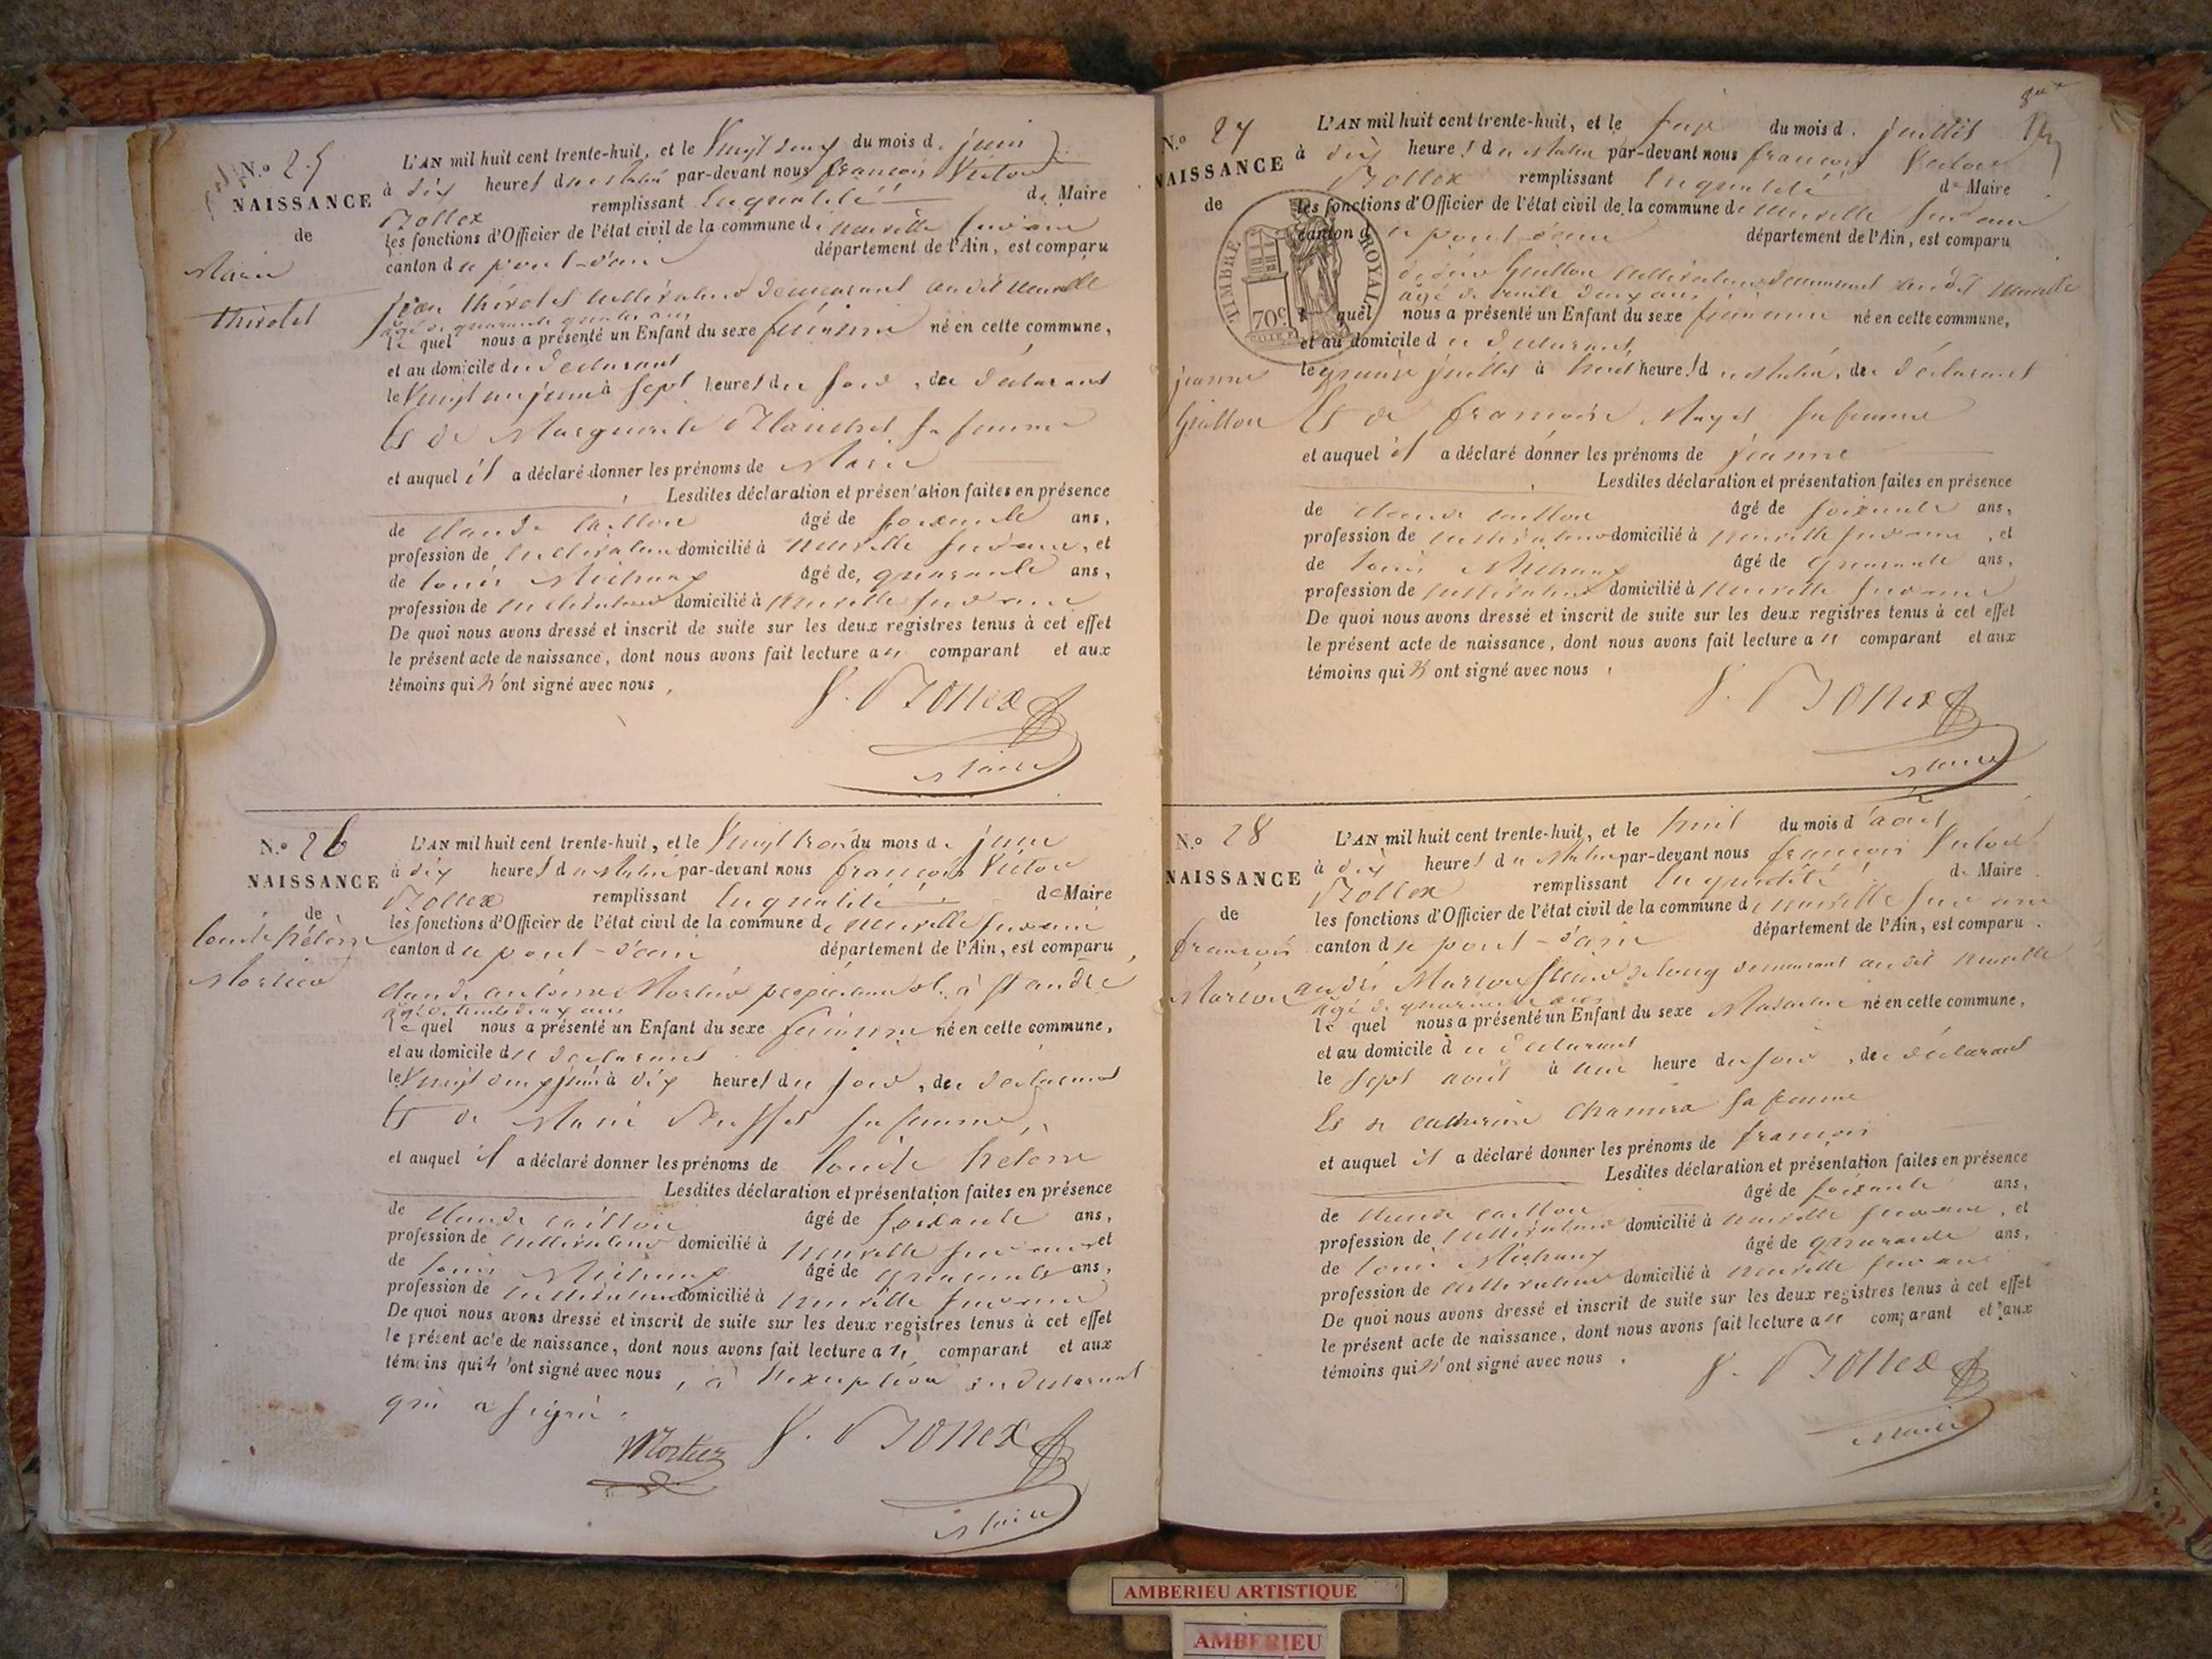 N.o 25
NAISSANCE
de
Marie
thirolet
L'AN mil huit cent trente-huit, et le Vingt deux du mois de juin
à dix heures du matin par-devant nous françois Victor
Bollex remplissant en qualité de Maire
les fonctions d'Officier de l'état civil de la commune de neuville sur ain
canton de pont-d'ain département de l'Ain, est comparu
jean thirolet cultivateur demeurant audit neuville
âgé de quarante quatre ans
le quel nous a présenté un Enfant du sexe féminin né en cette commune,
et au domicile du déclarant
le Vingt un juin à sept heures du soir, du déclarant
et de Marguerite sa femme
et auquel il a déclaré donner les prénoms de Marie
Lesdites déclaration et présentation faites en présence
de claude caillon âgé de soixante ans,
profession de cultivateur domicilié à neuville sur ain, et
de louis Michaux âgé de quarante ans,
profession de cultivateur domicilié à neuville sur ain
De quoi nous avons dressé et inscrit de suite sur les deux registres tenus à cet effet
le présent acte de naissance, dont nous avons fait lecture au comparant et aux
témoins qui n'ont signé avec nous,
Maire
N.o 26
NAISSANCE
de
Mortier
L'AN mil huit cent trente-huit, et le Vingt trois du mois de juin
à dix heures du matin par-devant nous françois Victor
Bollex remplissant en qualité de Maire
les fonctions d'Officier de l'état civil de la commune de neuville sur ain
canton de pont-d'ain département de l'Ain, est comparu
claude antoine Mortier propriétaire à st andré
âgé de trente deux ans
le quel nous a présenté un Enfant du sexe féminin né en cette commune,
et au domicile du déclarant
le Vingt deux juin à dix heures du soir, du déclarant
et de Marie sa femme,
et auquel il a déclaré donner les prénoms de
Lesdites déclaration et présentation faites en présence
de claude caillon âgé de soixante ans,
profession de cultivateur domicilié à neuville sur ain et
de louis Michaux âgé de quarante ans,
profession de cultivateur domicilié à neuville sur ain
De quoi nous avons dressé et inscrit de suite sur les deux registres tenus à cet effet
le présent acte de naissance, dont nous avons fait lecture au comparant et aux
témoins qui n'ont signé avec nous, à l'exception du déclarant
qui a signé.
Mortier
Maire
N.o 27
NAISSANCE
de
jeanne
Guillon
TIMBRE ROYAL
70c
L'AN mil huit cent trente-huit, et le du mois de juillet
à dix heures du matin par-devant nous françois Victor
Bollex remplissant en qualité de Maire
les fonctions d'Officier de l'état civil de la commune de neuville sur ain
canton de pont-d'ain département de l'Ain, est comparu
Guillon cultivateur demeurant audit neuville
âgé de trente deux ans
le quel nous a présenté un Enfant du sexe féminin né en cette commune,
et au domicile du déclarant
le quinze juillet à huit heures du matin, du déclarant
et de françoise sa femme
et auquel il a déclaré donner les prénoms de jeanne
Lesdites déclaration et présentation faites en présence
de claude caillon âgé de soixante ans,
profession de cultivateur domicilié à neuville sur ain, et
de louis Michaux âgé de quarante ans,
profession de cultivateur domicilié à neuville sur ain
De quoi nous avons dressé et inscrit de suite sur les deux registres tenus à cet effet
le présent acte de naissance, dont nous avons fait lecture au comparant et aux
témoins qui n'ont signé avec nous,
Maire
N.o 28
NAISSANCE
de
françois
Marion
L'AN mil huit cent trente-huit, et le huit du mois d'août
à dix heures du matin par-devant nous françois Victor
Bollex remplissant en qualité de Maire
les fonctions d'Officier de l'état civil de la commune de neuville sur ain
canton de pont-d'ain département de l'Ain, est comparu
andré Marion demeurant audit neuville
âgé de quarante ans
le quel nous a présenté un Enfant du sexe Masculin né en cette commune,
et au domicile du déclarant
le sept août à une heure du soir, du déclarant
et de catherine sa femme
et auquel il a déclaré donner les prénoms de françois
Lesdites déclaration et présentation faites en présence
de claude caillon âgé de soixante ans,
profession de cultivateur domicilié à neuville sur ain, et
de louis Michaux âgé de quarante ans,
profession de cultivateur domicilié à neuville sur ain
De quoi nous avons dressé et inscrit de suite sur les deux registres tenus à cet effet
le présent acte de naissance, dont nous avons fait lecture au comparant et aux
témoins qui n'ont signé avec nous.
Maire
AMBERIEU ARTISTIQUE
AMBERIEU